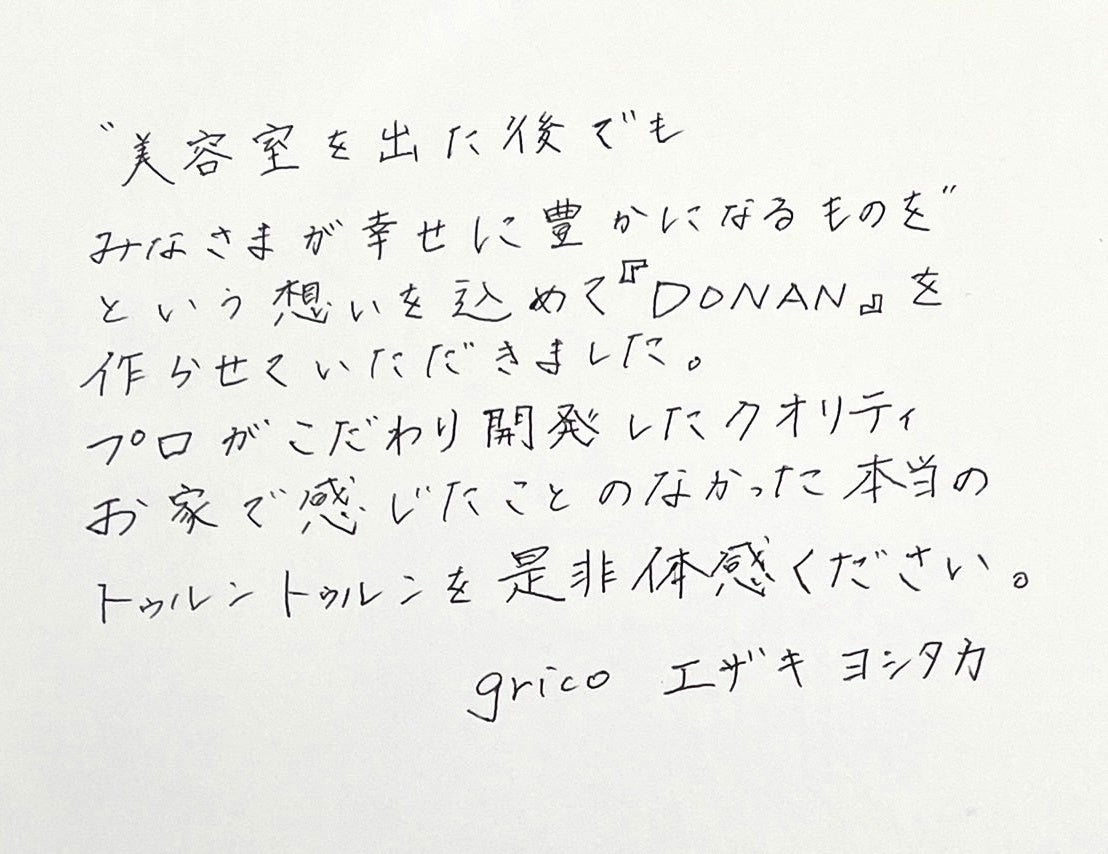 "美容室を出た後でも
みなさまが幸せに豊かになるものを"
という想いを込めて『DONAN』を
作らせていただきました。
プロがこだわり開発したクオリティ
お家で感じたことのなかった本当の
トゥルントゥルンを是非体感ください。
grico エザキ ヨシタカ